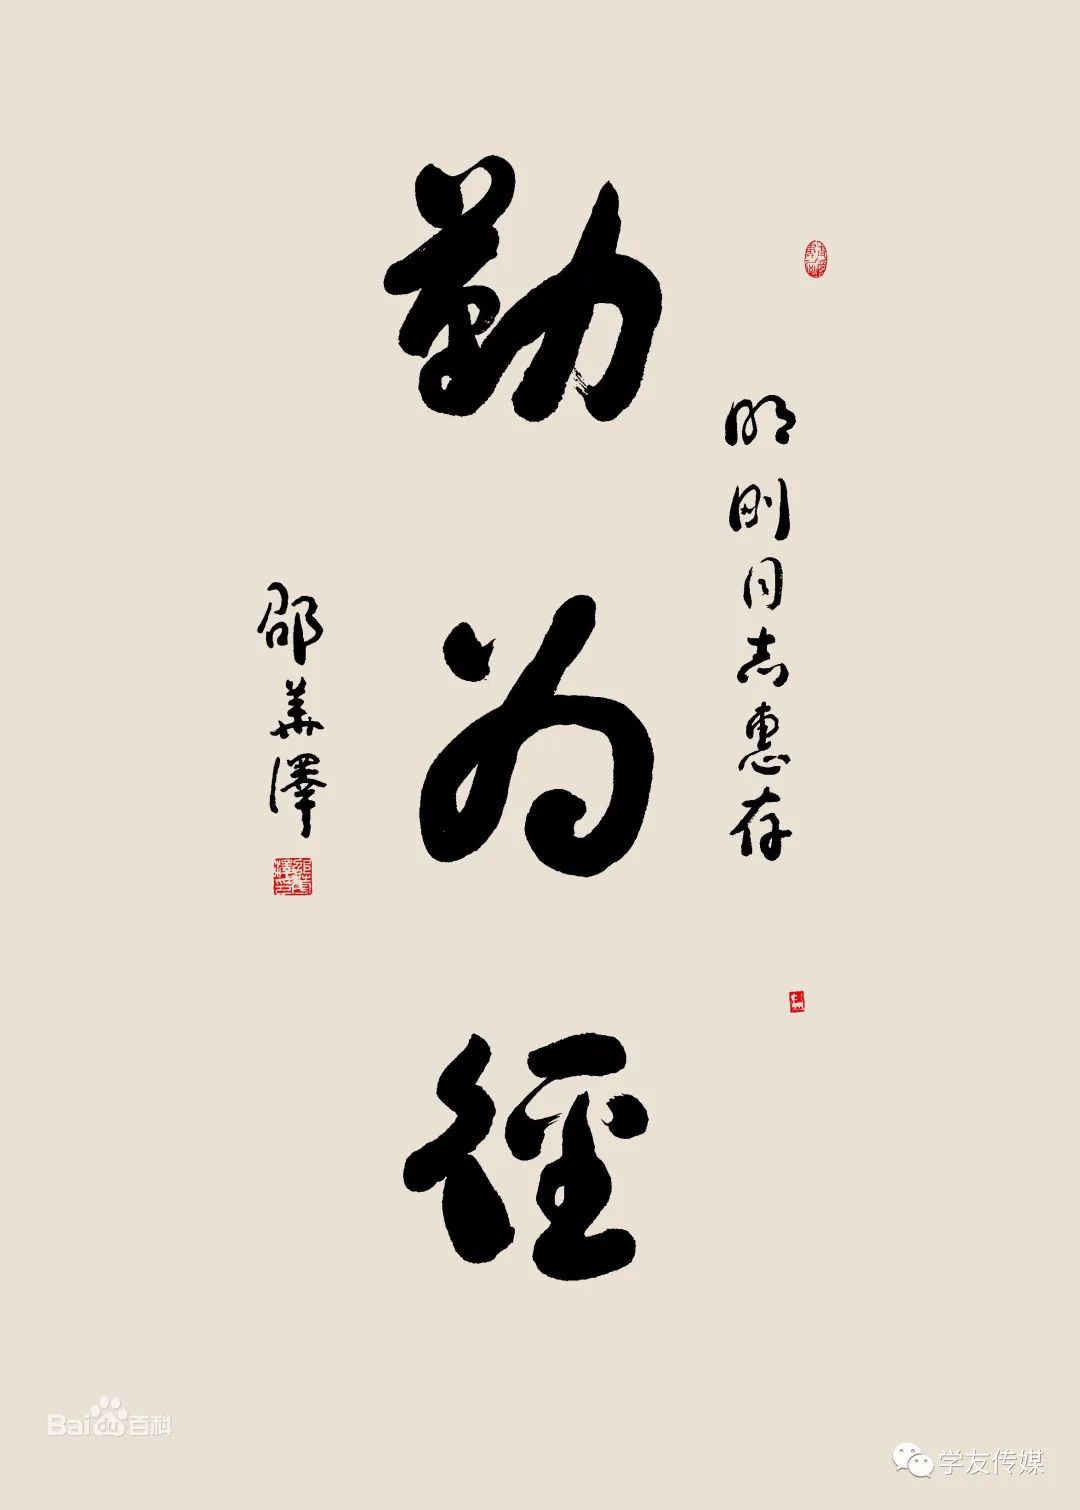 明刚同志惠存
勤为径
邵华泽
Bai du 百科
学友传媒